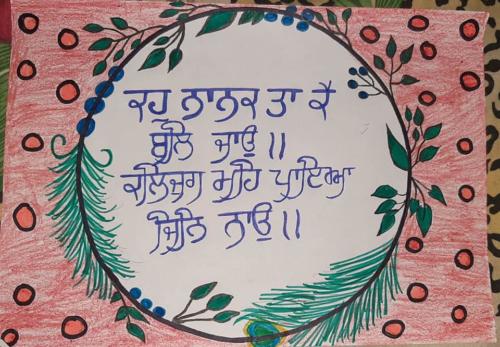 ਕਹੁ ਨਾਨਕ ਤਾ ਕੈ
ਬਲਿ ਜਾਉ ॥
ਕਲਿਜੁਗ ਮਹਿ ਪਾਇਆ
ਜਿਨਿ ਨਾਉ ॥